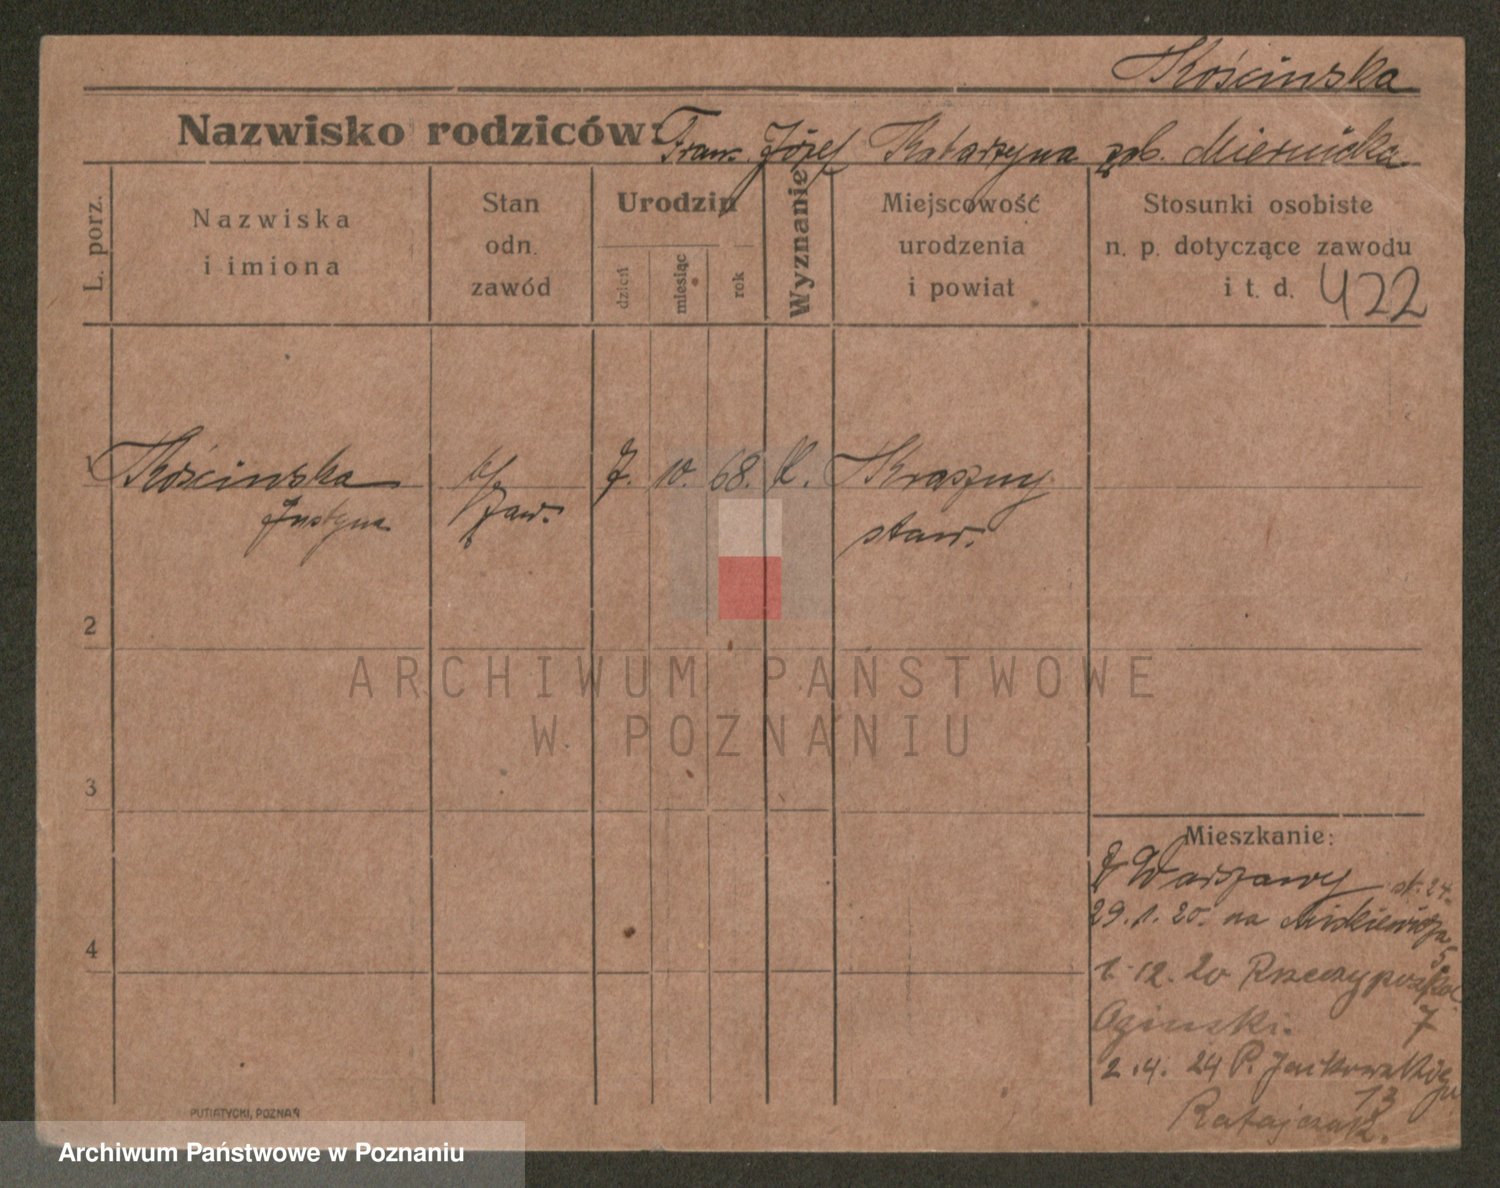 Kościnska
Nazwisko rodziców: Franc. Józef Katarzyna zab. Miernicka
L. porz.
Nazwiska
i imiona
Stan
odn.
zawód
Urodzin
dzień
miesiąc
rok
Wyznanie
Miejscowość
urodzenia
i powiat
Stosunki osobiste
n. p. dotyczące zawodu
i t. d. 422
1 Kościnska b/ 7. 10. 68. K. Kraszny
Justyna zaw. staw.
2
3
4
ARCHIWUM PAŃSTWOWE
W POZNANIU
Mieszkanie:
Z Warszawy
29. 1. 20. na Mickiewicza
5
1. 12. 20
7
2. 4. 24 P. Jackowskiego
13
Ratajczak.
PUTIATYCKI, POZNAŃ
Archiwum Państwowe w Poznaniu